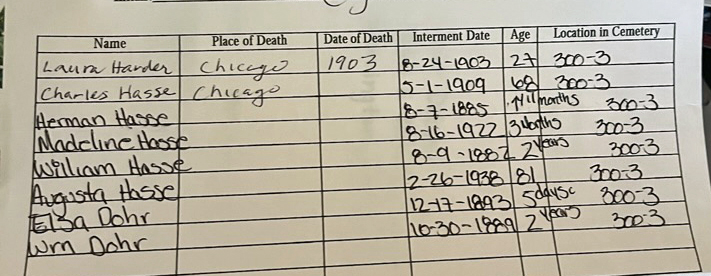 Name Place of Death Date of Death Interment Date Age Location in Cemetery
Laura Harder Chicago 1903 8-24-1903 27 300-3
Charles Hasse Chicago 5-1-1909 68 300-3
Herman Hasse 8-7-1885 11 months 300-3
Madeline Hasse 8-16-1922 3 Months 300-3
William Hasse 8-9-1882 2 Years 300-3
Augusta Hasse 2-26-1938 81 300-3
Elsa Dohr 12-17-1893 5 days 300-3
Wm Dohr 10-30-1889 2 Years 300-3